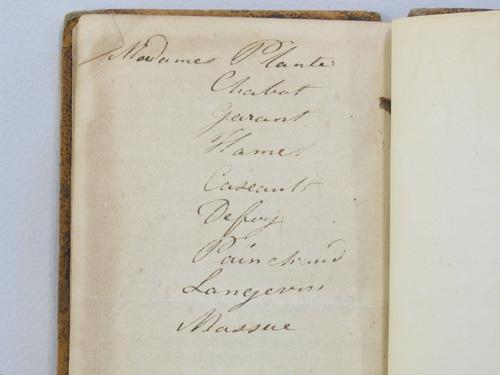 Madames Plante
Chabot
Garant
Hamel
Caseault
Defoy
Painchaud
Langevin
Massue